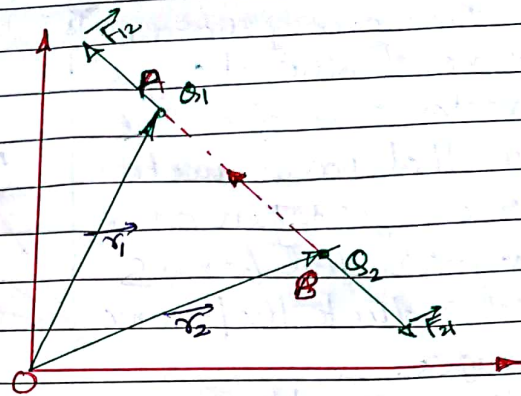 F12
A Q1
r1
B Q2
r2
F21
O